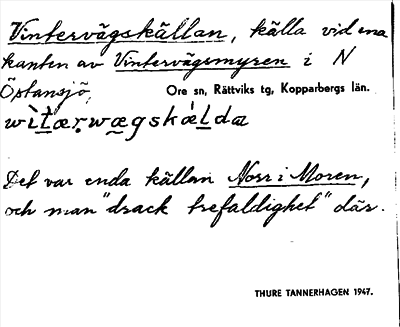 Vintervägskällan, källa vid ena
kanten av Vintervägsmyren i N
Östansjö,
Ore sn, Rättviks tg, Kopparbergs län.
wìtærwægskæ̀lda
Det var enda källan Norr i Moren,
och man "drack trefaldighet" där.
THURE TANNERHAGEN 1947.